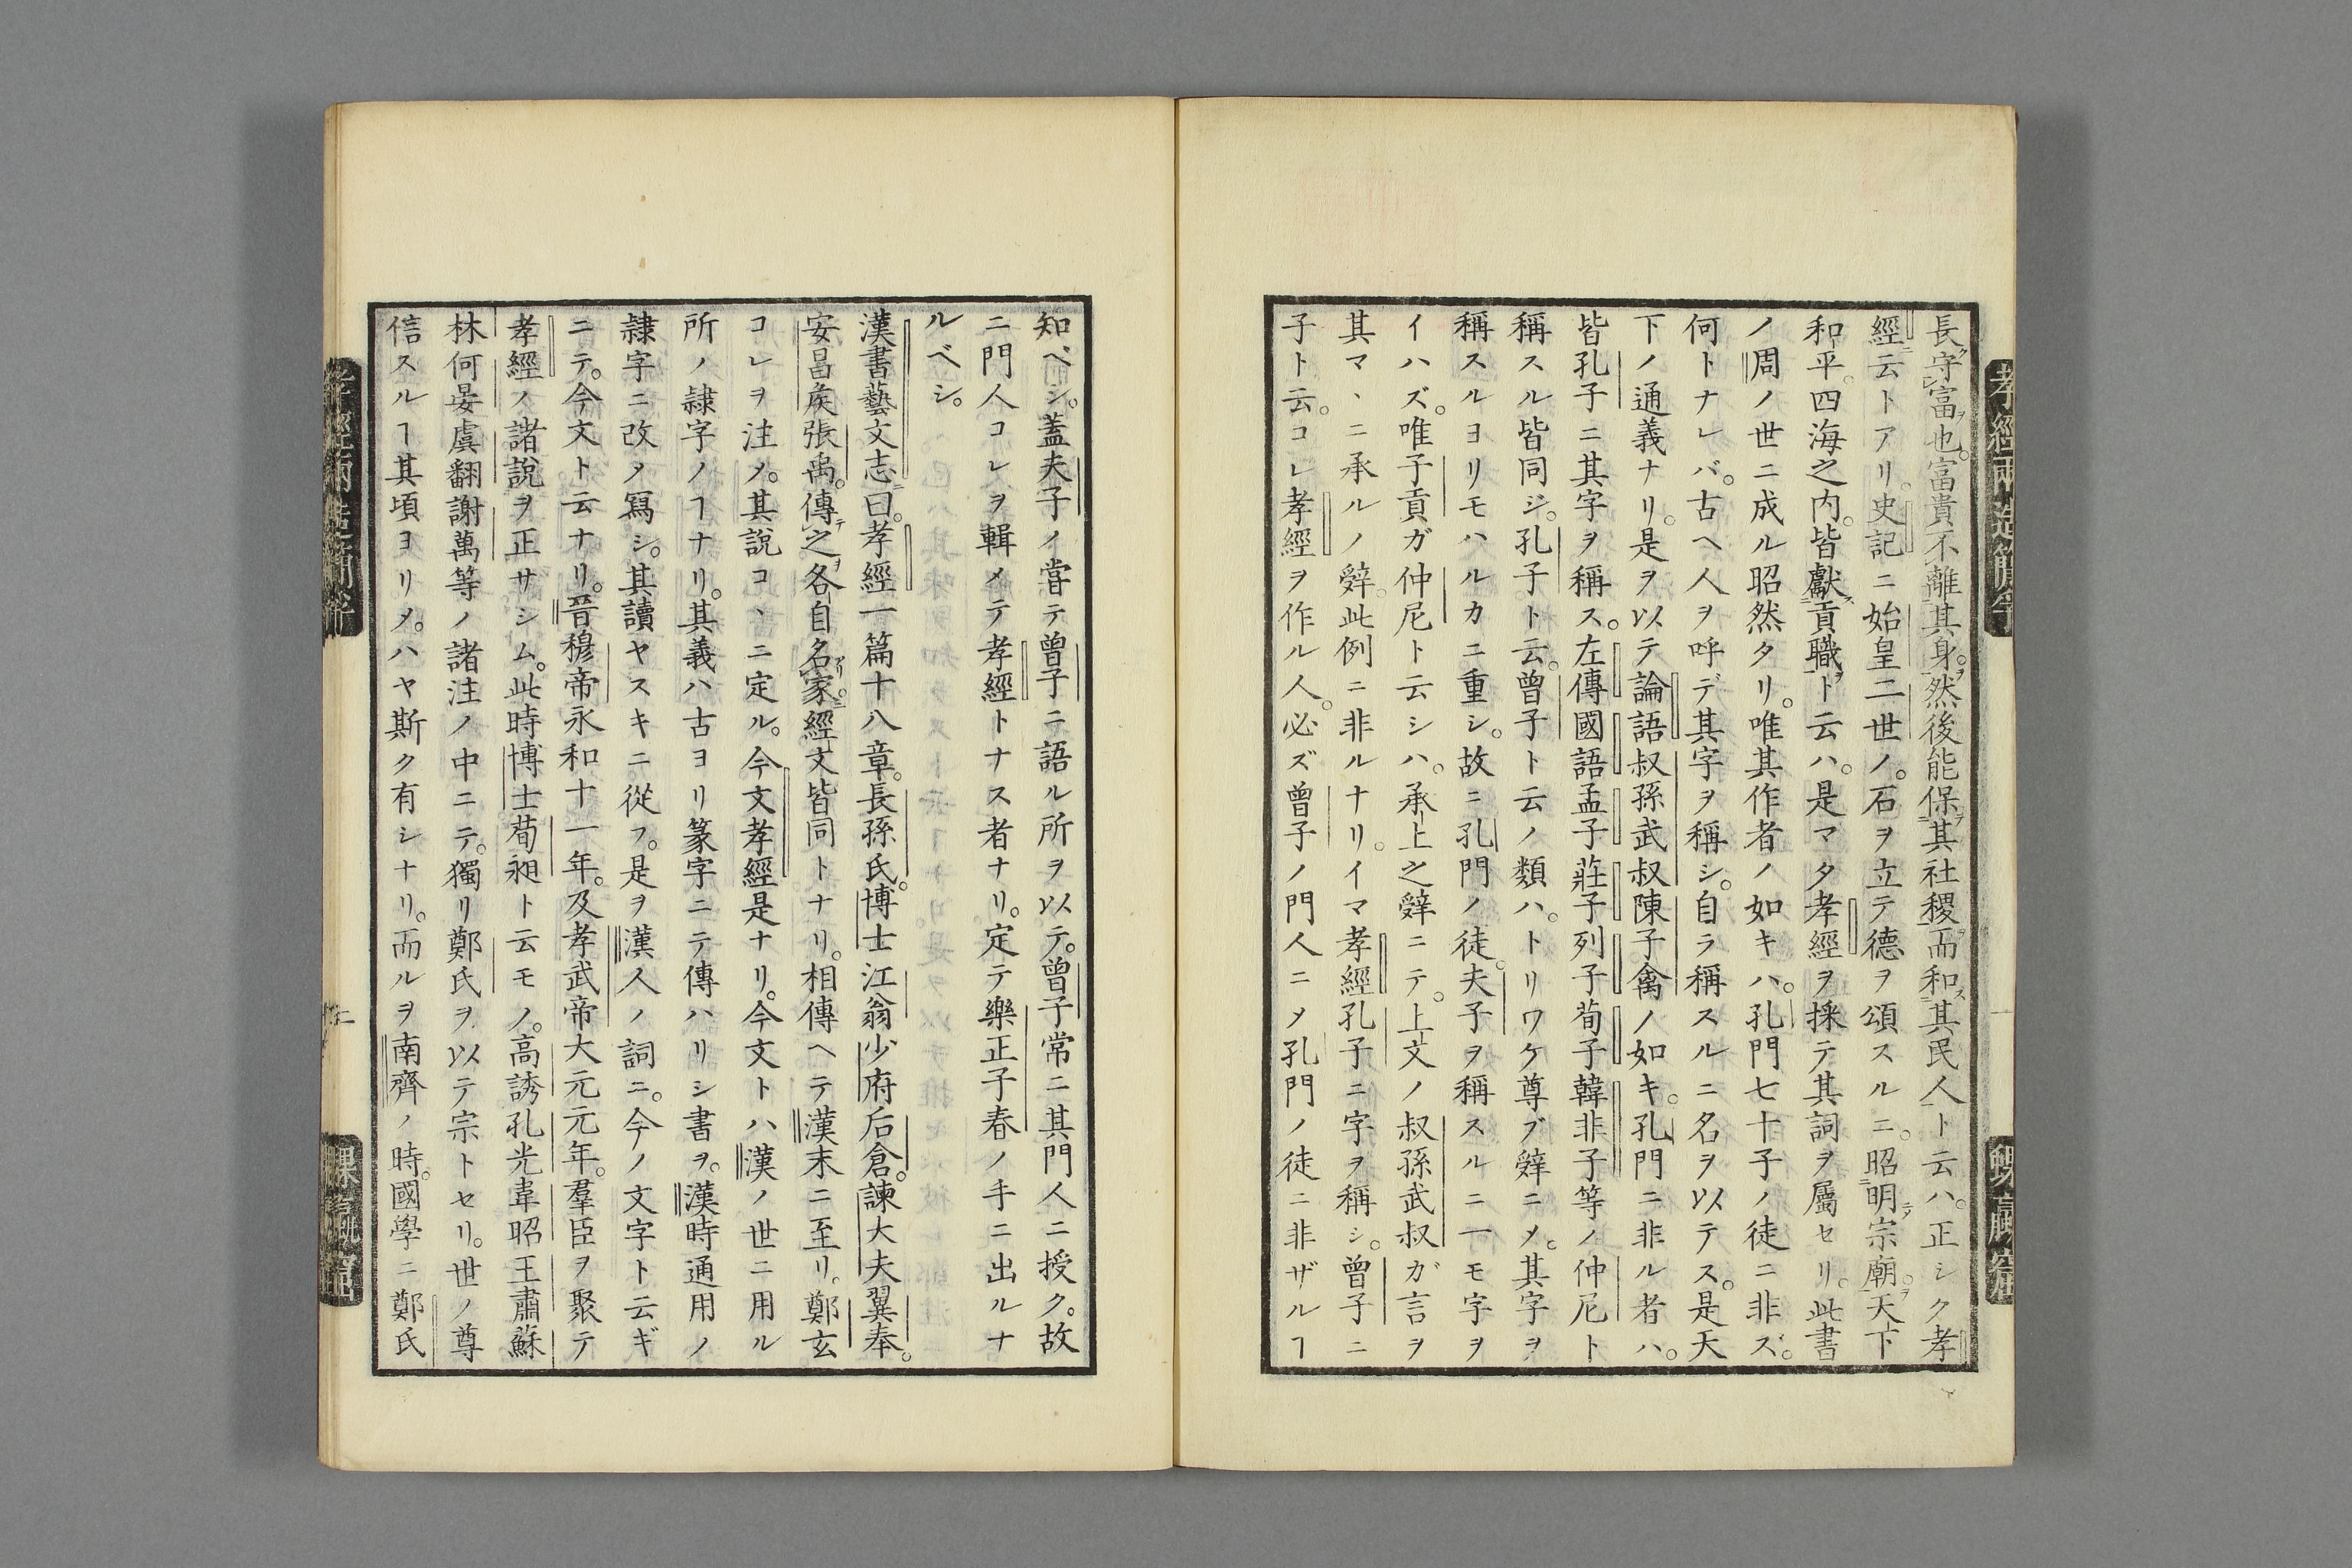 長守富也。富貴不離其身。然後能保其社稷。而和其民人ト云ハ。正シク孝
經云トアリ。史記ニ始皇二世ノ。石ヲ立テ德ヲ頌スルニ。昭明宗廟。天下
和平。四海之内。皆獻貢職ト云ハ。是マタ孝經ヲ採テ其詞ヲ屬セリ。此書
ノ周ノ世ニ成ル昭然タリ。唯其作者ノ如キハ。孔門七十子ノ徒ニ非ズ。
何トナレバ。古ヘ人ヲ呼デ其字ヲ稱シ。自ラ稱スルニ名ヲ以テス。是天
下ノ通義ナリ。是ヲ以テ論語叔孫武叔陳子禽ノ如キ。孔門ニ非ル者ハ。
皆孔子ニ其字ヲ稱ス。左傳國語孟子莊子列子荀子韓非子等ノ仲尼ト
稱スル皆同ジ。孔子ト云。曾子ト云ノ類ハ。トリワケ尊ブ辤ニメ。其字ヲ
稱スルヨリモハルカニ重シ。故ニ孔門ノ徒。夫子ヲ稱スルニ一モ字ヲ
イハズ。唯子貢ガ仲尼ト云シハ。承上之辤ニテ。上文ノ叔孫武叔ガ言ヲ
其マヽニ承ルノ辤。此例ニ非ルナリ。イマ孝經孔子ニ字ヲ稱シ。曾子ニ
子ト云。コレ孝經ヲ作ル人。必ズ曾子ノ門人ニメ孔門ノ徒ニ非ザルヿ
知ベシ。蓋夫子ノ嘗テ曾子ニ語ル所ヲ以テ。曾子常ニ其門人ニ授ク。故
ニ門人コレヲ輯メテ孝經トナス者ナリ。定テ樂正子春ノ手ニ出ルナ
ルベシ。
漢書藝文志曰。孝經一篇十八章。長孫氏。博士江翁少府后倉。諫大夫翼奉。
安昌矦張禹。傳之各自名家。經文皆同トナリ。相傳ヘテ漢末ニ至リ。鄭玄
コレヲ注メ。其說コヽニ定ル。今文孝經是ナリ。今文トハ漢ノ世ニ用ル
所ノ隷字ノヿナリ。其義ハ古ヨリ篆字ニテ傳ハリシ書ヲ。漢時通用ノ
隷字ニ改メ寫シ。其讀ヤスキニ從フ。是ヲ漢人ノ詞ニ。今ノ文字ト云ギ
ニテ。今文ト云ナリ。晉穆帝永和十一年。及孝武帝大元元年。羣臣ヲ聚テ
孝經ノ諸說ヲ正サシム。此時博士荀昶ト云モノ。高誘孔光韋昭王肅蘇
林何晏虞翻謝萬等ノ諸注ノ中ニテ。獨リ鄭氏ヲ以テ宗トセリ。世ノ尊
信スルヿ其頃ヨリメ。ハヤ斯ク有シナリ。而ルヲ南齊ノ時。國學ニ鄭氏